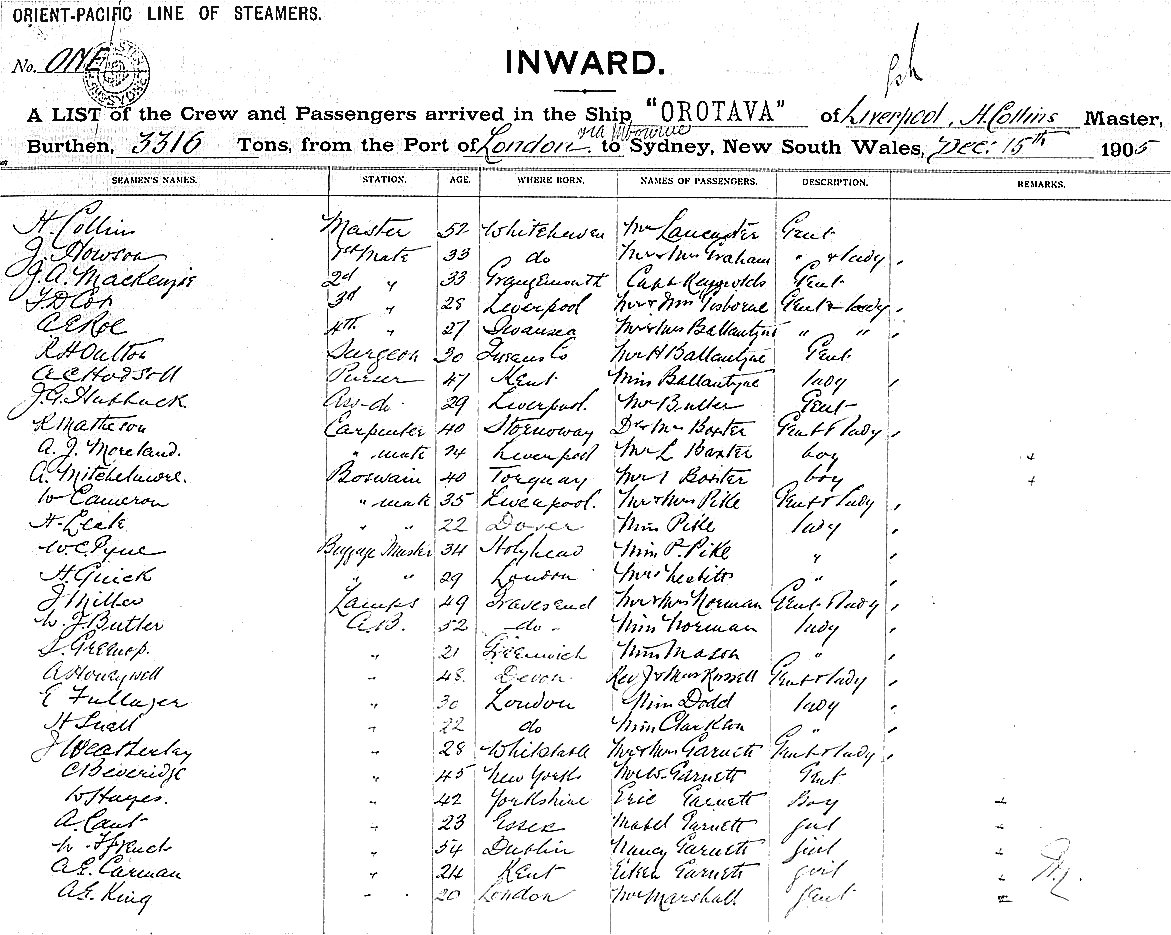 ORIENT-PACIFIC LINE OF STEAMERS.
No. ONE
INWARD.
A LIST of the Crew and Passengers arrived in the Ship "OROTAVA" of Liverpool, H. Collins Master,
via Mbourne
Burthen, 3316 Tons, from the Port of London to Sydney, New South Wales, Dec: 15th 1905
SEAMEN'S NAMES. STATION. AGE. WHERE BORN. NAMES OF PASSENGERS. DESCRIPTION. REMARKS.
H. Collins Master 52 Whitehaven Mr Lancaster Gent
J. Howson 1st Mate 33 do Mr & Mrs Graham " & lady
J. A. MacKenzie 2nd " 33 Grangemouth Capt Reynolds Gent
F D Cox 3rd " 28 Liverpool Mr & Mrs Osborne Gent & lady
A E Roe 4th " 27 Swansea Mr & Mrs Ballantyne " "
R H Dalton Surgeon 30 Queens Co Mr H Ballantyne Gent
A C Hodsoll Purser 47 Kent Miss Ballantyne lady
J. G. Hubbuck Ass do 29 Liverpool. Mr Butler Gent
K Matheson Carpenter 40 Stornoway Dr & Mrs Baxter Gent & lady
A. J. Moreland. " mate 24 Liverpool Mr L Baxter boy +
A. Boswain 40 Torquay Mr Baxter boy +
W Cameron " mate 35 Liverpool. Mr & Mrs Pike Gent & lady
H. Leak " " 22 Dover Miss Pike lady
W. C. Pyne Baggage Master 34 Holyhead Miss P. Pike "
H. Quick " " 29 London Mrs Nesbitt "
J Miller Lamps 49 Gravesend Mr & Mrs Norman Gent & lady
W. J Butler A.B. 52 do Miss Norman lady
S. Greenop. " 21 Greenwich Miss Mason "
A Honeywell " 48 Devon Rev J & Mrs Russell Gent & lady
E Fullager " 30 London Miss Dodd lady
H Snell " 22 do Miss Clarkson "
J Weatherley " 28 Whitstable Mr & Mrs Garnett Gent & lady
C Beveridge " 45 New York Mr W. Garnett Gent
W Hayes. " 42 Yorkshire Eric Garnett Boy +
A. Cant " 23 Essex Mabel Garnett girl
W. Ffrench " 54 Dublin Nancy Garnett girl
A. E. Carman " 24 Kent Eileen Garnett girl
A. E. King " 20 London Mr Marshall. Gent